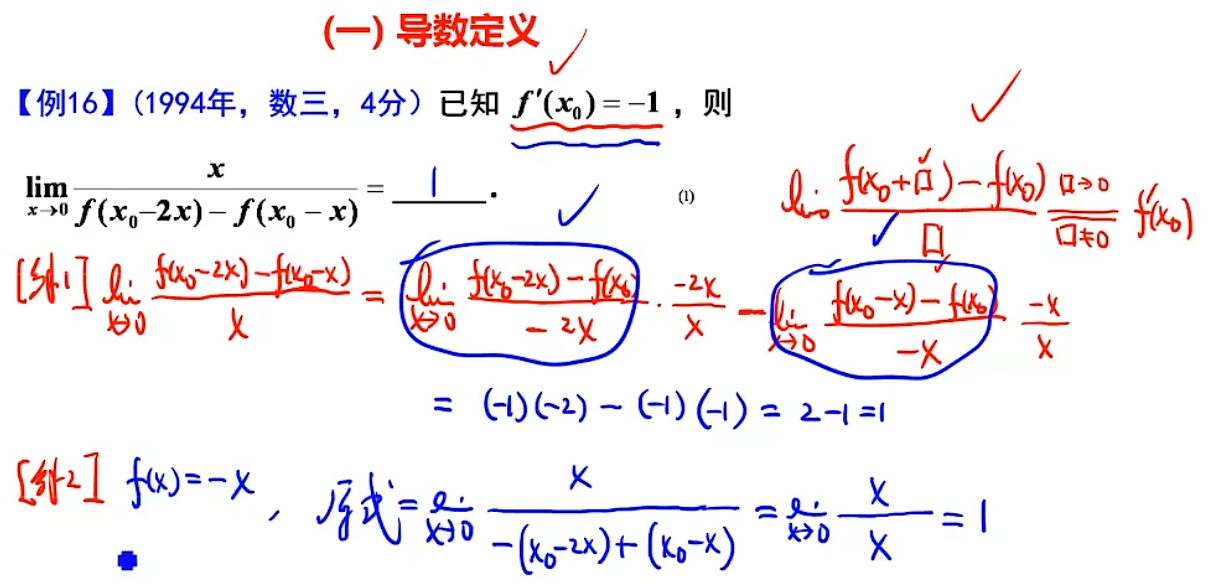 (一) 导数定义
【例16】(1994年, 数三, 4分) 已知 f′(x₀) = −1 , 则
lim x→0 x / (f(x₀−2x) − f(x₀ − x)) = 1 . (1)
lim (f(x₀+□) − f(x₀)) / □ □→0 □≠0 f′(x₀)
lim x→0 (f(x₀−2x) − f(x₀−x)) / x = lim x→0 (f(x₀−2x) − f(x₀)) / −2x · −2x / x − lim x→0 (f(x₀−x) − f(x₀)) / −x −x / x
= (−1)(−2) − (−1)(−1) = 2−1=1
f(x) = −x , 原式 = lim x→0 x / (−(x₀−2x)+(x₀−x)) = lim x→0 x / x = 1